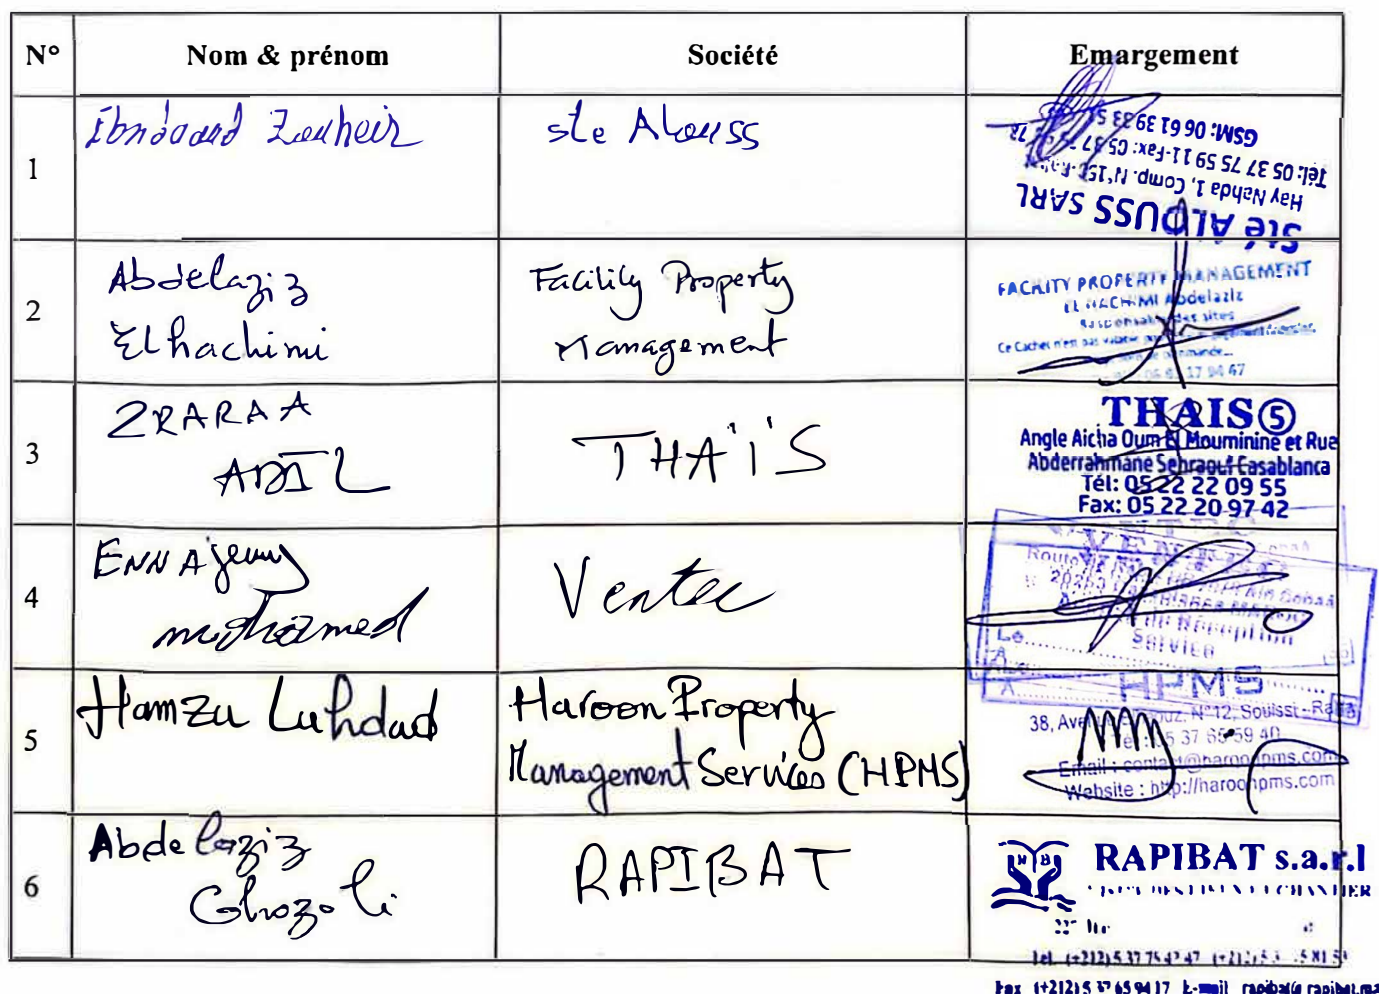 N° Nom & prénom Société Emargement
1 Zouheir ste Alouss
Sté ALOUSS SARL
Hay Nahda 1, Comp. N°
Tél: 05 37 75 59 11-Fax: 05 37
GSM: 06 61 39 33
2 Abdelaziz
Elhachimi
Facility Property
Management
FACILITY PROPERTY MANAGEMENT
EL HACHIMI Abdelaziz
Responsable des sites
Ce Cachet n'est pas valable
17 94 47
3 ZRARAA
ADIL
THAÏS
THAIS 5
Angle Aicha Oum El Mouminine et Rue
Abderrahmane Sehraouf Casablanca
Tél: 05 22 22 09 55
Fax: 05 22 20 97 42
4
mohamed
Ventec
VENTEC
Route
20253
Réception
Service
Le
A
5 Hamza Lahdad
Haroon Property
Management Services (HPMS)
HPMS
38, N°12, Souissi - Rabat
Tel : 05 37 65 59 40
Email : contact@haroonhpms.com
Website : http://haroonhpms.com
6 Abdelaziz
Ghozali
RAPIBAT
RAPIBAT s.a.r.l
Fax (+212) 5 37 65 94 17 E-mail rapibat@rapibat.ma